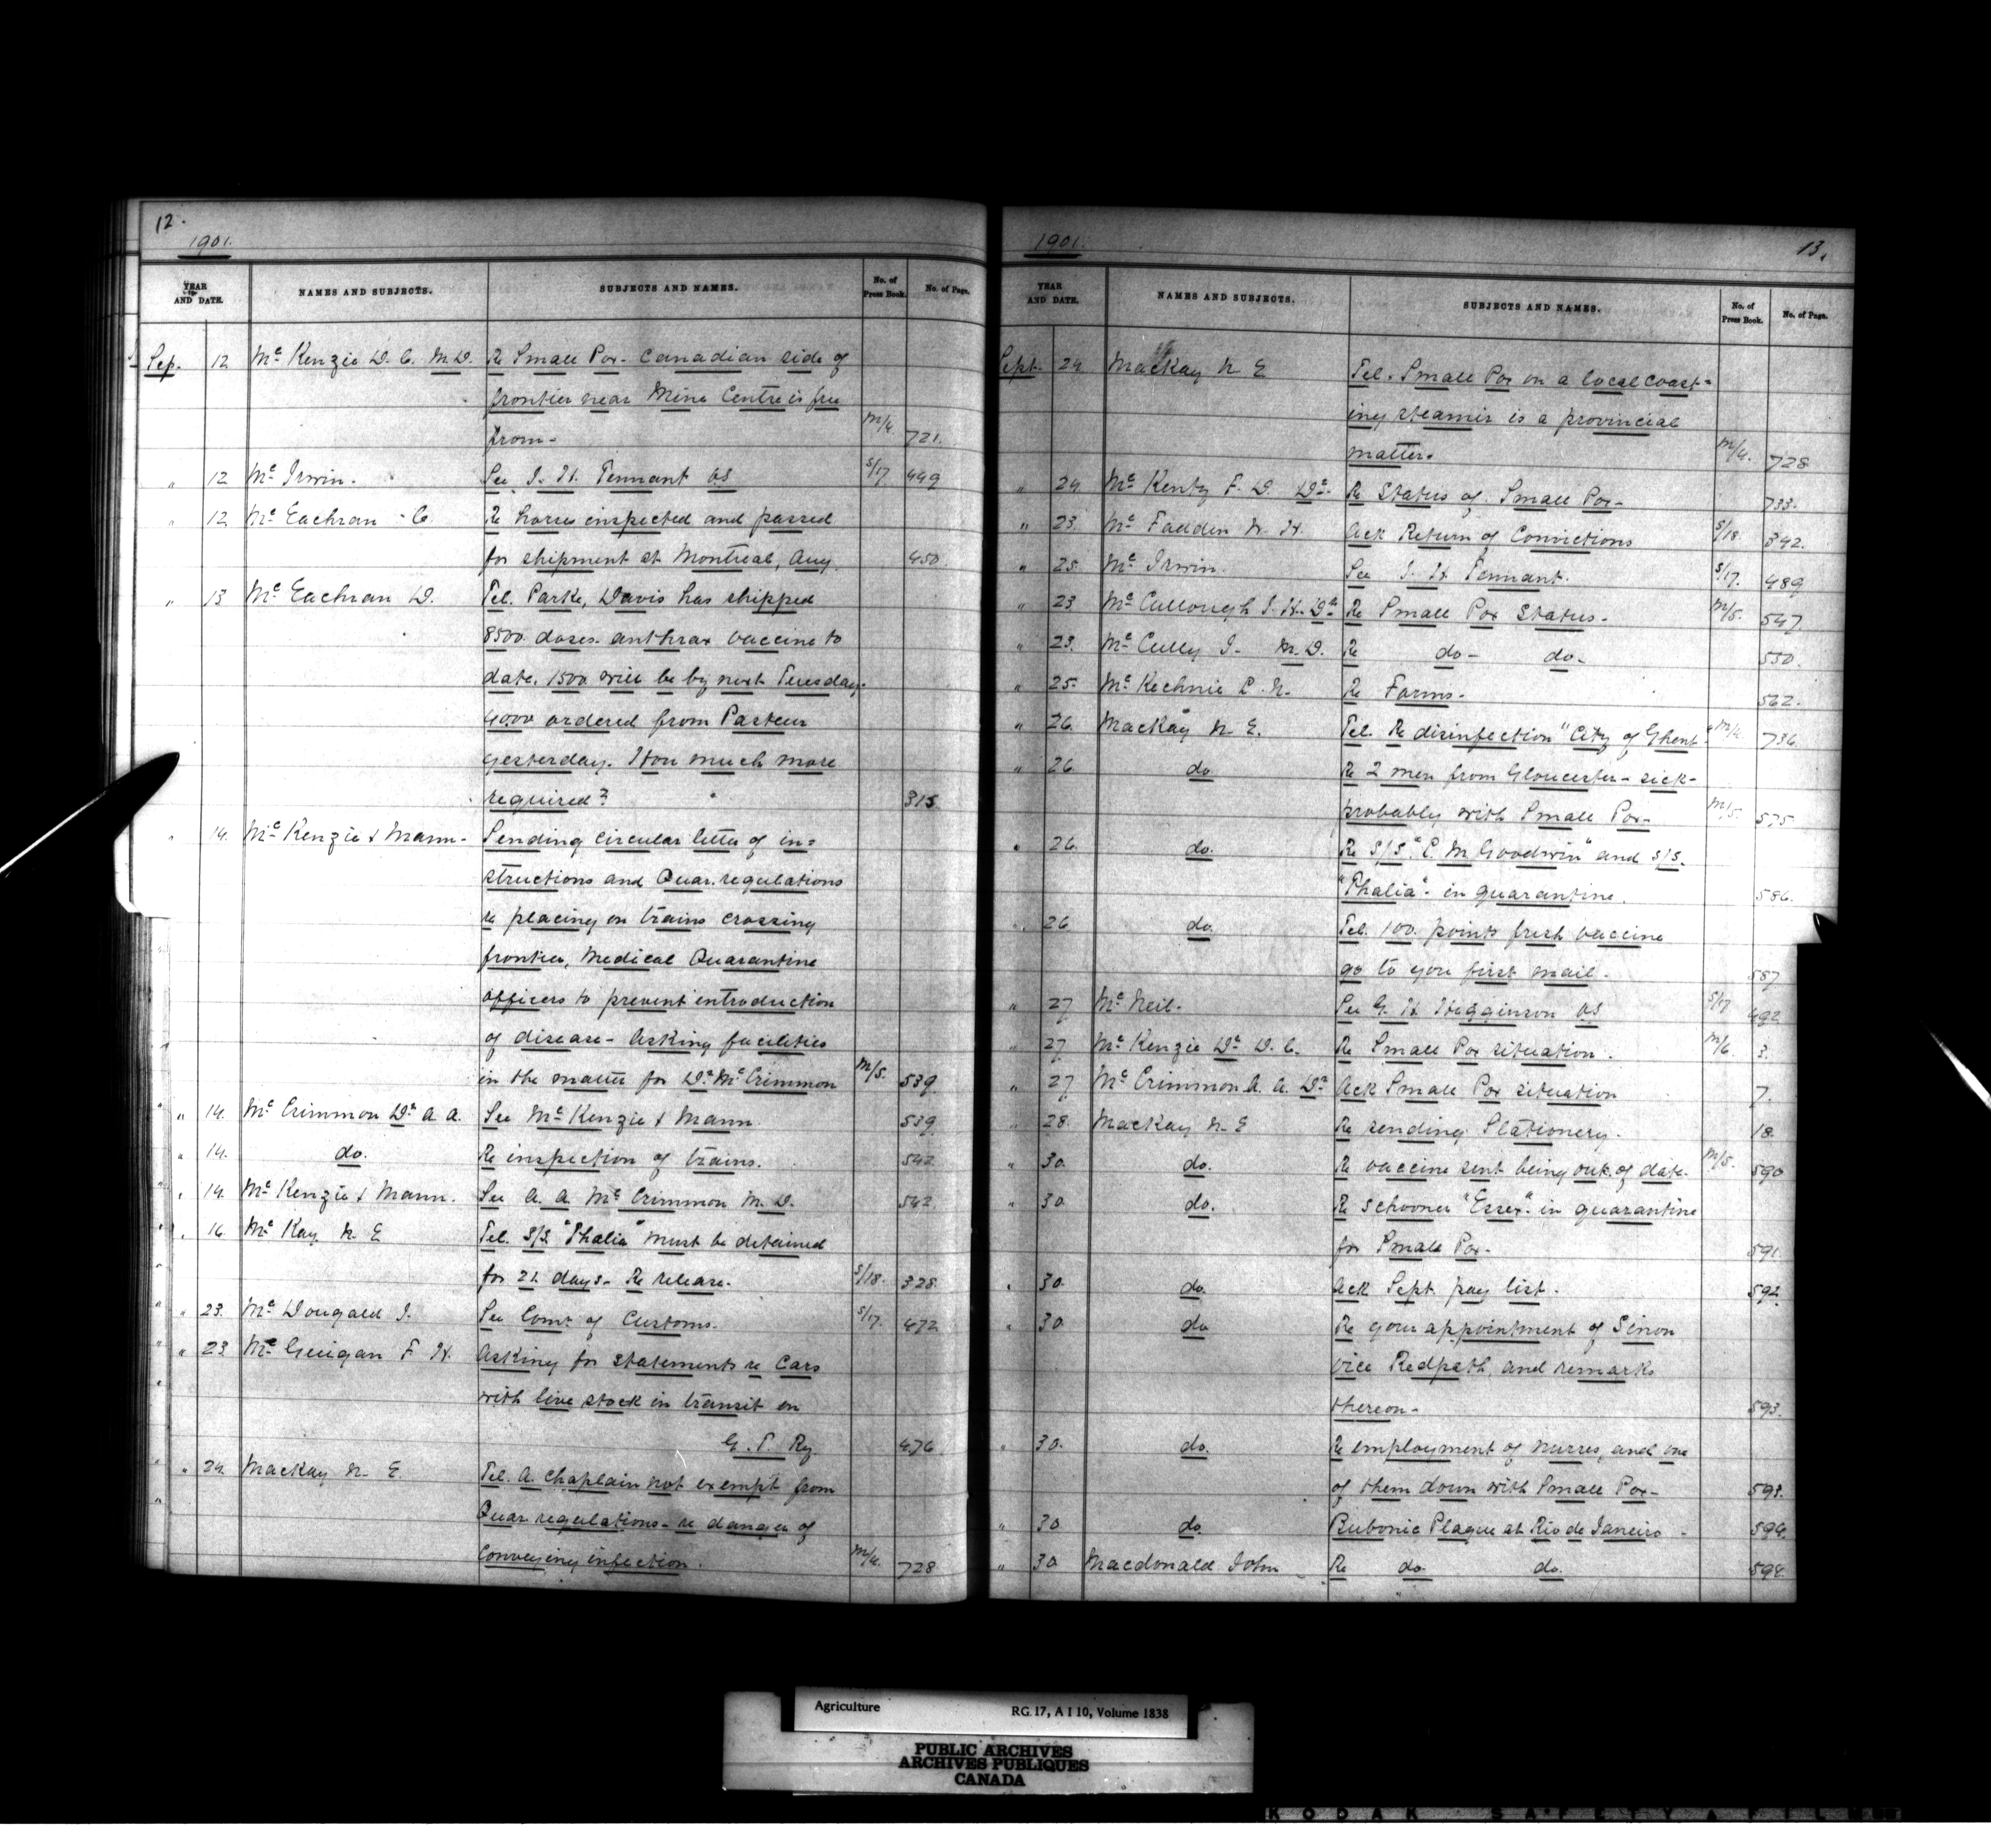 12.
1901.
YEAR AND DATE. NAMES AND SUBJECTS. SUBJECTS AND NAMES. No. of Press Book. No. of Page.
Sep. 12 Mc Kenzie D. C. M.D. Re Small Pox - Canadian side of
frontier near Mine Centre is free
from - M/4. 721.
" 12 Mc Irwin. See J. H. Tennant VS S/17 449
" 12 Mc Eachran - C. Re horses inspected and passed
for shipment at Montreal, Aug. 450
" 13 Mc Eachran D. Tel. Parke, Davis has shipped
8500 doses anthrax vaccine to
date. 1500 will be by next Tuesday.
4000 ordered from Pasteur
yesterday. How much more
required? 315
" 14. Mc Kenzie & Mann - Sending circular letter of in=
structions and Quar. regulations
re placing on trains crossing
frontier, Medical Quarantine
officers to prevent introduction
of disease - Asking facilities
in the matter for Dr. Mc Crimmon M/5. 539
" 14. Mc Crimmon Dr. A. A. See Mc Kenzie & Mann 539
" 14. do. Re inspection of trains. 542
" 14. Mc Kenzie & Mann. See A. A. Mc Crimmon M. D. 542
" 16. Mc Kay N. E Tel. S/S "Thalia" must be detained
for 21 days - Re release. S/18. 328
" 23. Mc Dougald J. See Comr. of Customs. S/17. 472
" 23 Mc Guigan F. H. Asking for statements re Cars
with live stock in transit on
G. T. Ry. 476
" 24. MacKay N. E. Tel. A. Chaplain not exempt from
Quar. regulations - re danger of
conveying infection. M/4. 728
1901. 13.
YEAR AND DATE. NAMES AND SUBJECTS. SUBJECTS AND NAMES. No. of Press Book. No. of Page.
Sept. 24 MacKay N E Tel. Small Pox on a local coast=
ing steamer is a provincial
matter. M/4. 728
" 24 Mc Kenty F. D. Dr. Re Status of Small Pox - 733.
" 23. Mc Fadden W. H. Ack Return of Convictions S/18 342.
" 25 Mc Irwin. See J. H Tennant. S/17. 489
" 23 Mc Cullough J. H. Dr. Re Small Pox Status. M/5. 547
" 23. Mc Cully J. M.D. Re do - do - 550.
" 25 Mc Kechnie P. N. Re Forms. 562.
" 26. MacKay N. E. Tel. Re disinfection "City of Ghent" M/4 736
" 26 do Re 2 men from Gloucester - sick -
probably with Small Pox - M/5. 575
" 26. do. Re S/S. "C. M. Goodwin" and S/S.
"Thalia" - in quarantine. 586.
" 26 do. Tel. 100. points fresh vaccine
go to you first mail. 587
" 27 Mc Neil. See G. H Higginson VS S/17 492
" 27 Mc Kenzie Dr. D. C. Re Small Pox situation. M/6. 3.
" 27 Mc Crimmon A. A. Dr. Ack Small Pox situation 7.
" 28. MacKay N. E Re sending Stationery. 18.
" 30 do. Re vaccine sent being out of date. M/5. 590
" 30 do. Re schooner "Essex" in quarantine
for Small Pox - 591.
" 30 do. Ack Sept. pay list. 592.
" 30. do Re your appointment of Simon
vice Redpath, and remarks
thereon - 593.
" 30. do. Re employment of nurses, and one
of them down with Small Pox - 593.
" 30 do. Bubonic Plague at Rio de Janeiro - 594.
" 30 Macdonald John Re do do. 594.
Agriculture RG 17, A I 10, Volume 1838
PUBLIC ARCHIVES
ARCHIVES PUBLIQUES
CANADA
KODAK SAFETY FILM